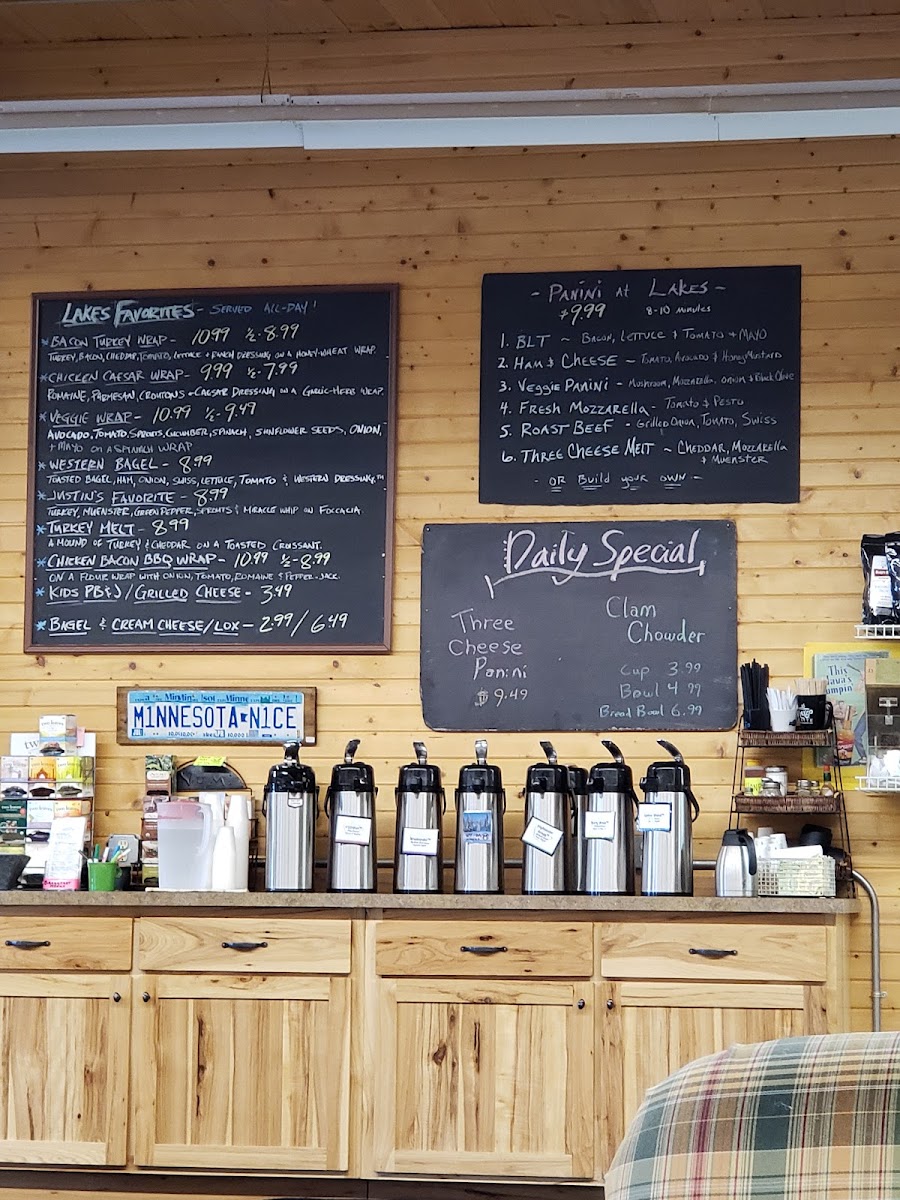 LAKES FAVORITES - SERVED ALL-DAY!
* BACON TURKEY WRAP - 10.99 ½ - 8.99
TURKEY, BACON, CHEDDAR, TOMATO, LETTUCE & RANCH DRESSING ON A HONEY-WHEAT WRAP.
* CHICKEN CAESAR WRAP - 9.99 ½ - 7.99
ROMAINE, PARMESAN, CROUTONS & CAESAR DRESSING ON A GARLIC-HERB WRAP.
* VEGGIE WRAP - 10.99 ½ - 9.49
AVOCADO, TOMATO, SPROUTS, CUCUMBER, SPINACH, SUNFLOWER SEEDS, ONION,
+ MAYO ON A SPINACH WRAP
* WESTERN BAGEL - 8.99
TOASTED BAGEL, HAM, ONION, SWISS, LETTUCE, TOMATO & WESTERN DRESSING™
* JUSTIN'S FAVORITE - 8.99
TURKEY, MUENSTER, GREEN PEPPER, SPROUTS & MIRACLE WHIP ON FOCCACIA.
* TURKEY MELT - 8.99
A MOUND OF TURKEY & CHEDDAR ON A TOASTED CROISSANT.
* CHICKEN BACON BBQ WRAP - 10.99 ½ - 8.99
ON A FLOUR WRAP WITH ONION, TOMATO, ROMAINE & PEPPER-JACK.
* KIDS PB&J / GRILLED CHEESE - 3.49
* BAGEL & CREAM CHEESE/LOX - 2.99 / 6.49
- PANINI AT LAKES -
$9.99 8-10 minutes
1. BLT ~ BACON, LETTUCE & TOMATO + MAYO
2. HAM & CHEESE ~ TOMATO, AVOCADO & HONEY MUSTARD
3. VEGGIE PANINI - MUSHROOM, MOZZARELLA, ONION & BLACK OLIVE
4. FRESH MOZZARELLA - TOMATO & PESTO
5. ROAST BEEF - GRILLED ONION, TOMATO, SWISS
6. THREE CHEESE MELT ~ CHEDDAR, MOZZARELLA
& MUENSTER
- OR Build your OWN -
Daily Special
Three
Cheese
Panini
$9.49
Clam
Chowder
Cup 3.99
Bowl 4.99
Bread Bowl 6.99
M1NNESOTA N1CE
10,000
This
Java's